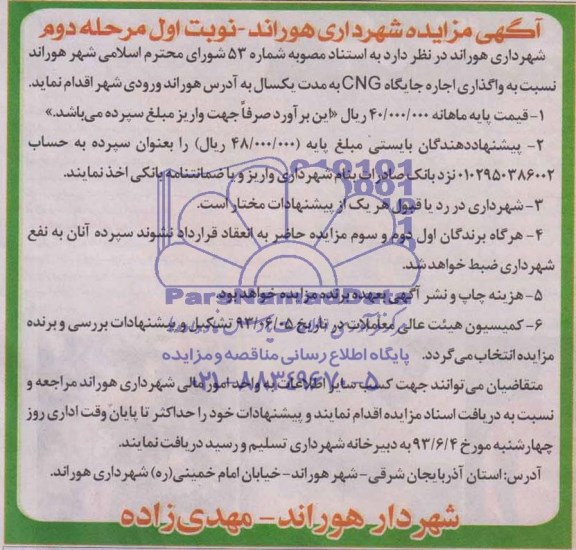 آگهی مزایده شهرداری هوراند-نوبت اول مرحله دوم
شهرداری هوراند در نظر دارد به استناد مصوبه شماره ۵۳ شورای محترم اسلامی شهر هوراند
نسبت به واگذاری اجاره جایگاه CNG به مدت یکسال به آدرس هوراند ورودی شهر اقدام نماید.
۱-قیمت پایه ماهانه ۴۰/۰۰۰/۰۰۰ ریال «این برآورد صرفاً جهت واریز مبلغ سپرده می‌باشد.»
۲- پیشنهاددهندگان بایستی مبلغ پایه (۴۸/۰۰۰/۰۰۰ ریال) را بعنوان سپرده به حساب
۰۱۰۲۹۵۰۳۸۶۰۰۲ نزد بانک صادرات بنام شهرداری واریز و یا ضمانتنامه بانکی اخذ نمایند.
۳-شهرداری در رد یا قبول هر یک از پیشنهادات مختار است.
۴- هرگاه برندگان اول دوم و سوم مزایده حاضر به انعقاد قرارداد نشوند سپرده آنان به نفع
شهرداری ضبط خواهد شد.
۵-هزینه چاپ و نشر آگهی بعهده برنده مزایده خواهد بود
۶-کمیسیون هیئت عالی معاملات در تاریخ ۹۳/۶/۰۵ تشکیل و پیشنهادات بررسی و برنده
مزایده انتخاب می‌گردد.
متقاضیان می‌توانند جهت کسب سایر اطلاعات به واحد امور مالی شهرداری هوراند مراجعه و
نسبت به دریافت اسناد مزایده اقدام نمایند و پیشنهادات خود را حداکثر تا پایان وقت اداری روز
چهارشنبه مورخ ۹۳/۶/۴ به دبیرخانه شهرداری تسلیم و رسید دریافت نمایند.
آدرس: استان آذربایجان شرقی-شهر هوراند-خیابان امام خمینی(ره) شهرداری هوراند.
شهردار هوراند-مهدی‌زاده
ParsNamadData
پایگاه اطلاع رسانی مناقصه و مزایده
۰۲۱-۸۸۳۴۹۶۷۰-۵